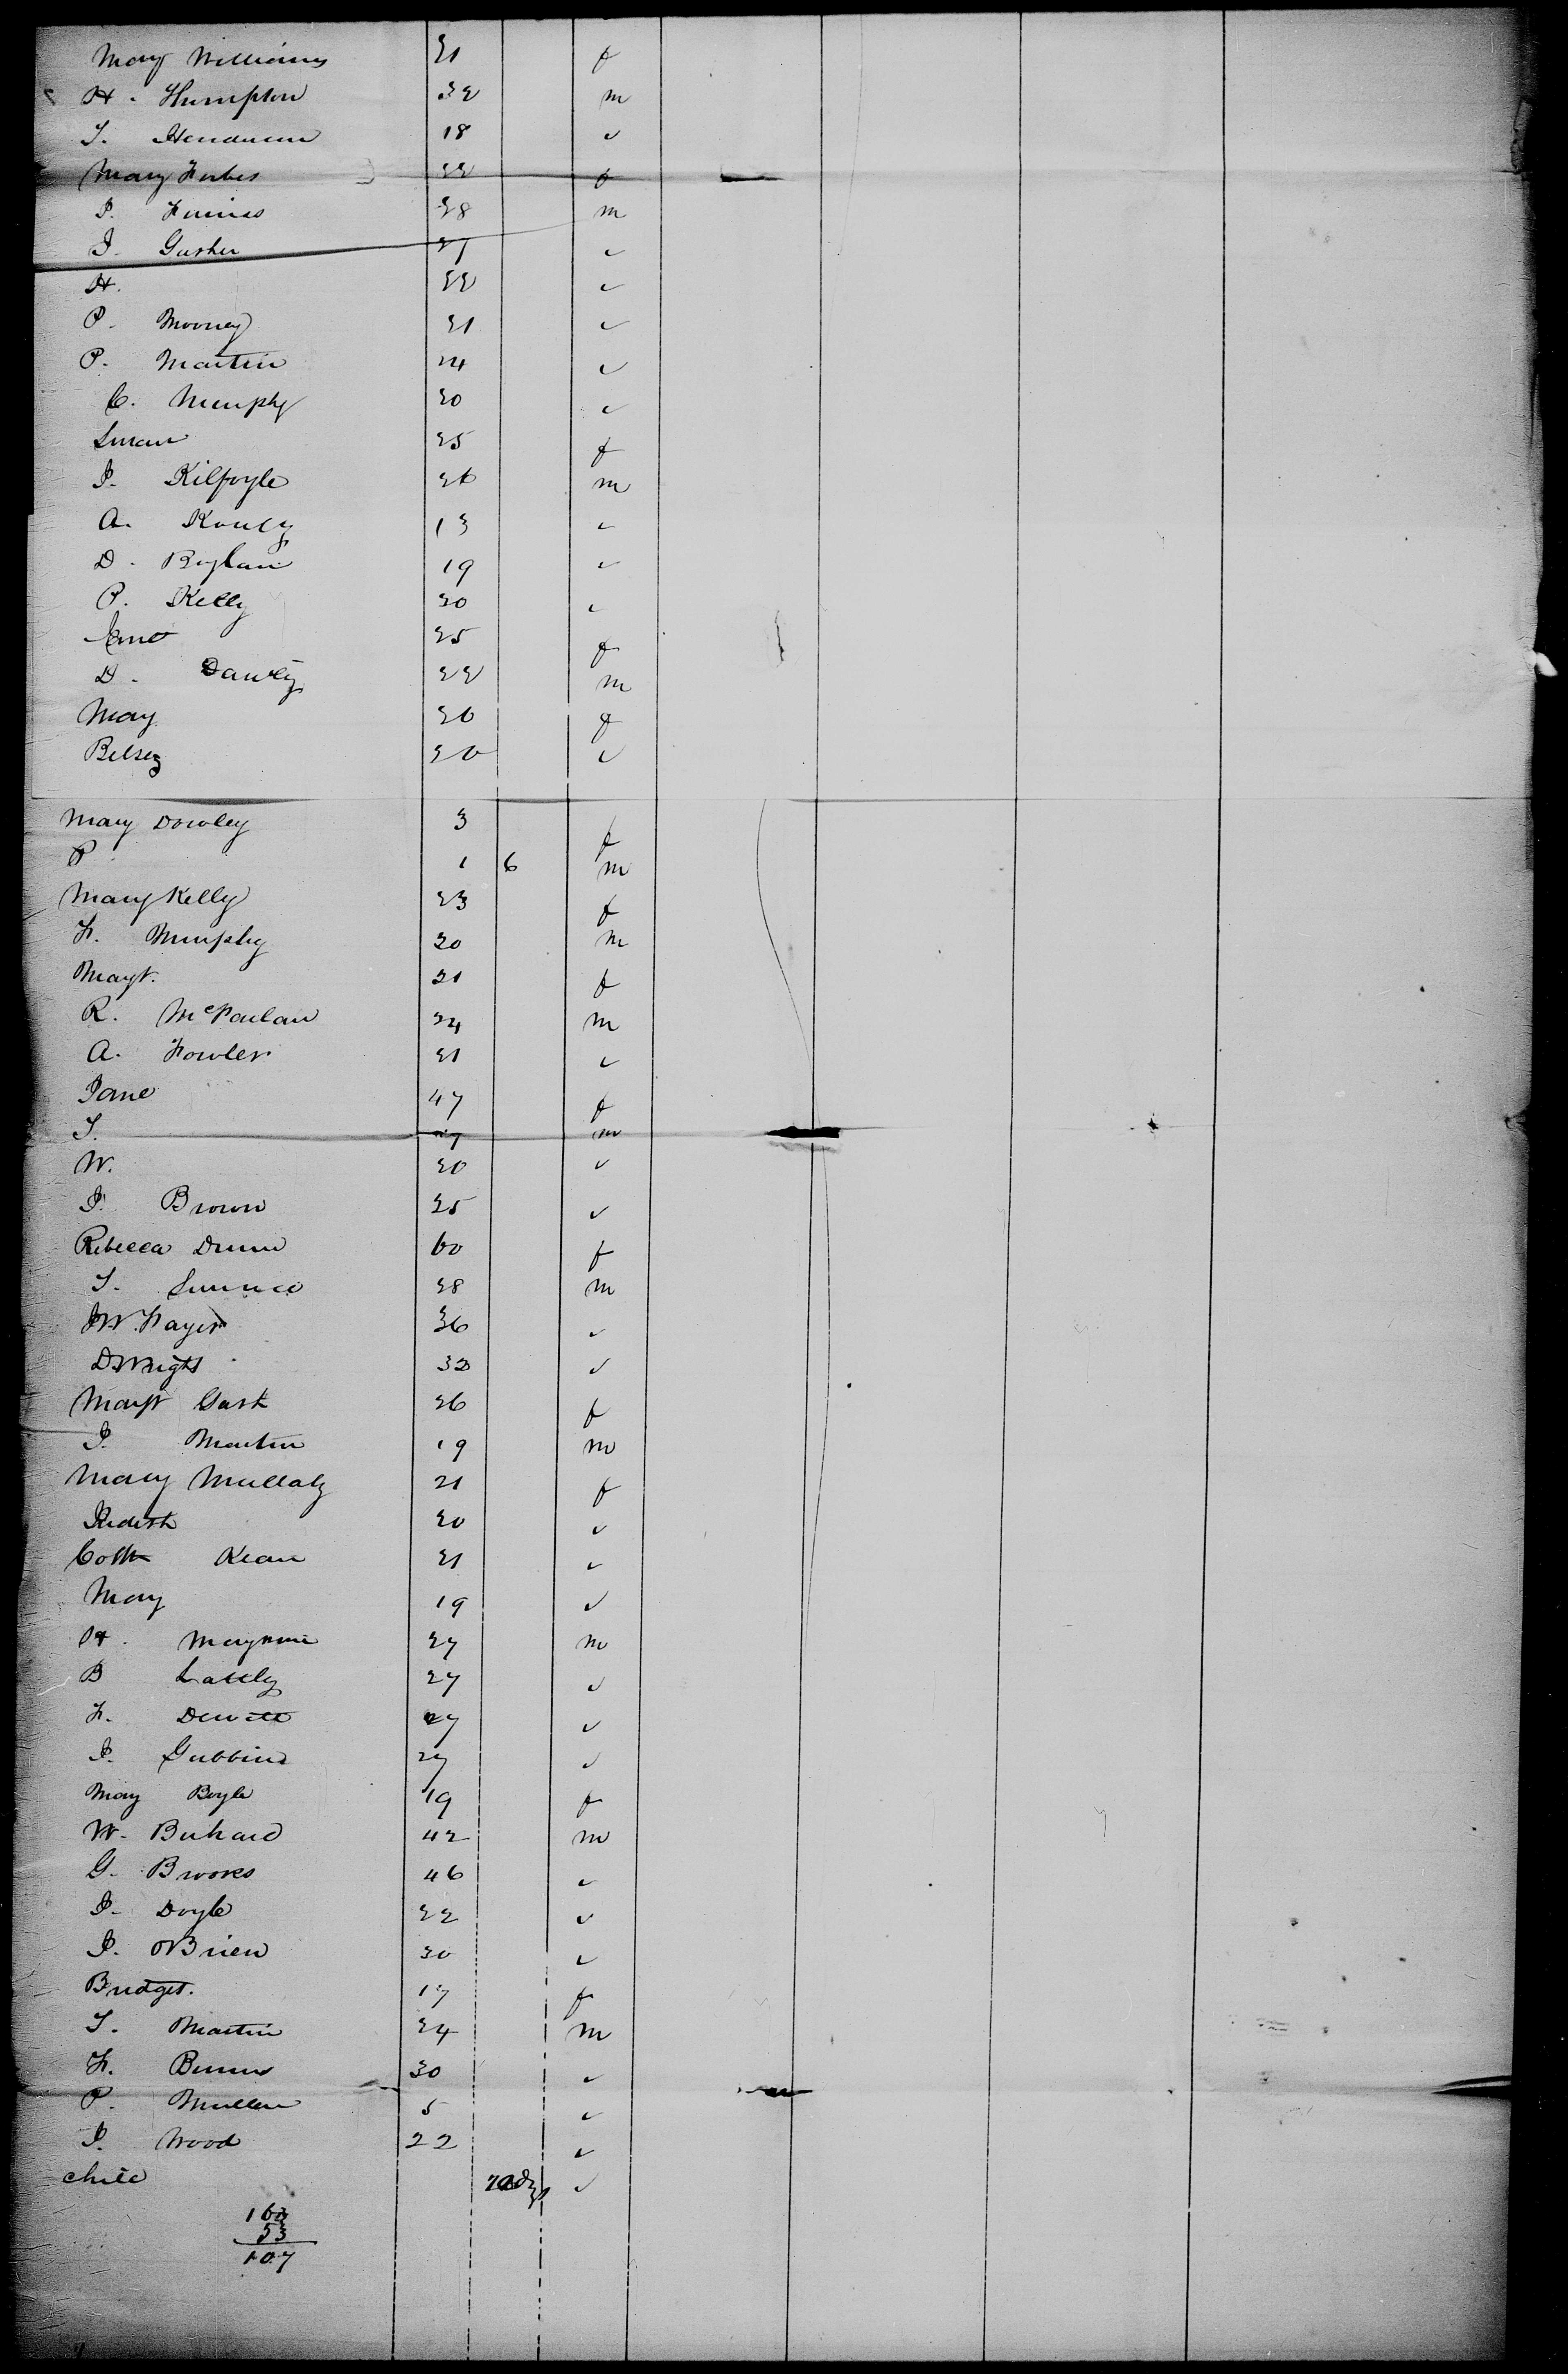 Mary Williams 21 f
H. Humpton 32 m
T. Henderson 18 "
Mary Forbes 22 f
J. 28 m
J. 27 "
H. 22 "
P. Mooney 21 "
P. Martin 24 "
C. Murphy 20 "
Susan 25 f
J. Kilfoyle 26 m
A. 13 "
D. Boylan 19 "
P. Kelly 20 "
25 f
D. Dawley 22 m
Mary 20 f
Betsey 20 "
Mary Dowley 3 f
P 1 6 m
Mary Kelly 23 f
F. Murphy 20 m
Magt. 21 f
R. McParlan 24 m
A. Fowler 21 "
Jane 47 f
T. m
W. 20 "
J. Brown 25 "
Rebecca Dunn 60 f
T. 28 m
J W. 36 "
D. Wright 32 "
Magt 26 f
J. Martin 19 m
Mary Mullaly 21 f
Judith 20 "
Cath Kean 21 "
Mary 19 "
H. 27 m
B Lattly 27 "
F. Dewitt 27 "
J. Gubbins 27 "
Mary Boyle 19 f
W. 42 m
G. Brooks 46 "
J. Doyle 22 "
J. OBrien 30 "
Bridget. 17 f
T. Martin 24 m
F. 30 "
P. Mullen 5 "
J. Wood 22 "
child "
53
107